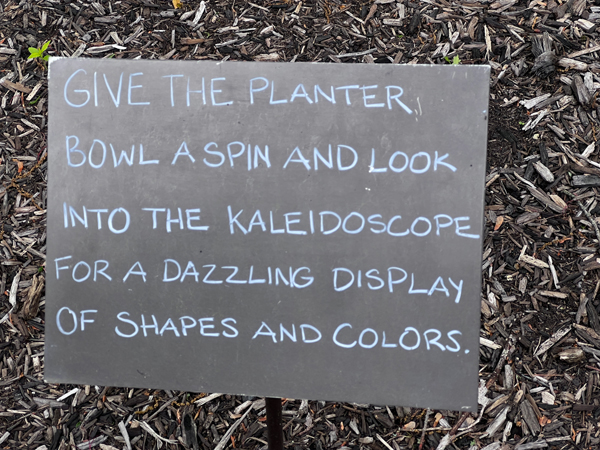 GIVE THE PLANTER
BOWL A SPIN AND LOOK
INTO THE KALEIDOSCOPE
FOR A DAZZLING DISPLAY
OF SHAPES AND COLORS.